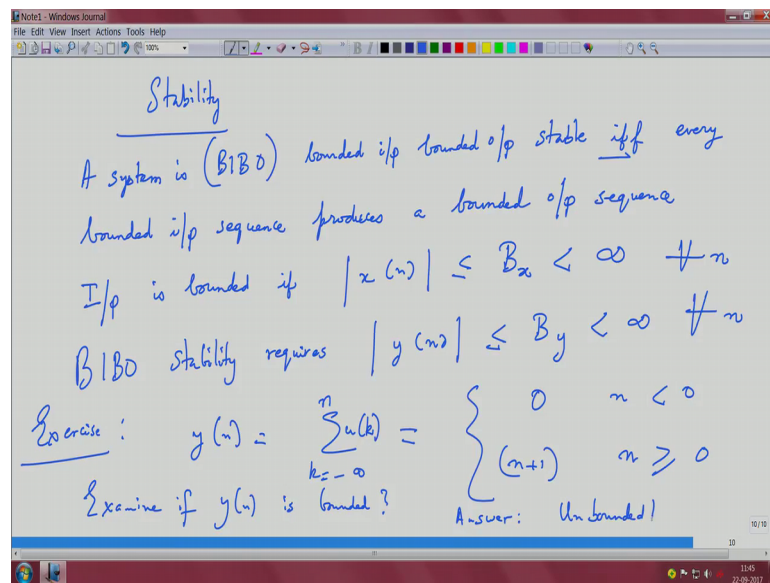 Note1 - Windows Journal
File Edit View Insert Actions Tools Help
100%
B I
Stability
A system is (BIBO) bounded i/p bounded o/p stable iff every
bounded i/p sequence produces a bounded o/p sequence
I/p is bounded if |x(n)| ≤ Bx < ∞ ∀ n
BIBO stability requires |y(n)| ≤ By < ∞ ∀ n
Exercise: y(n) = n ∑ k=-∞ u(k) = { 0 n < 0
(n+1) n ≥ 0
Examine if y(n) is bounded? Answer: Unbounded!
10/10
10
11:45
22-09-2017